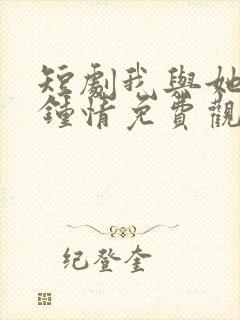 短劇我與她
鍾情免費觀
纪登奎